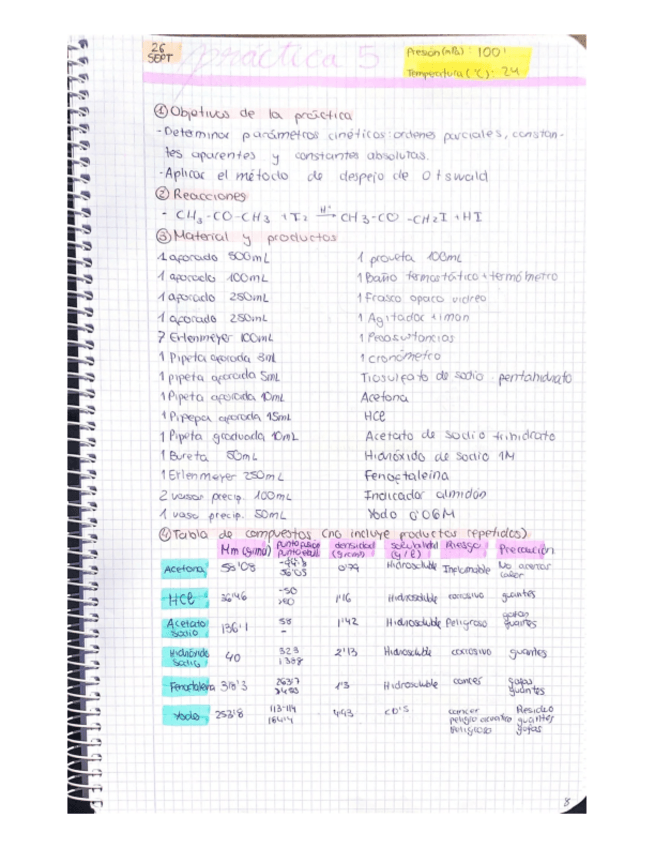 26 SEPT
práctica 5
Presión (mB): 1001
Temperatura (ºC): 24
① Objetivos de la práctica
- Determinar parámetros cinéticos: ordenes parciales, constan-
tes aparentes y constantes absolutas.
- Aplicar el método de despejo de Otswald
② Reacciones
- CH3-CO-CH3 + I2 H+→ CH3-CO-CH2I + HI
③ Material y productos
1 aforado 500mL 1 proveta 100mL
1 aforado 100mL 1 Baño termostático + termómetro
1 aforado 250mL 1 Frasco opaco vidreo
1 aforado 250mL 1 Agitador + iman
7 Erlenmeyer 100mL 1 Pesasustancias
1 Pipeta aforada 3mL 1 cronómetro
1 pipeta aforada 5mL Tiosulfato de sodio pentahidrato
1 Pipeta aforada 10mL Acetona
1 Pipepa aforada 15mL HCl
1 Pipeta graduada 10mL Acetato de sodio trihidrato
1 Bureta 50mL Hidróxido de sodio 1M
1 Erlenmeyer 250mL Fenoctaleina
2 vasos precip. 100mL Indicador almidón
1 vaso precip. 50mL Yodo 0'06M
④ Tabla de compuestos (no incluye productos repetidos)
Mm (g/mol) punto fusion punto ebull densidad (g/cm3) solubilidad (g/L) Riesgo Precaución
Acetona 58'08 56'05 0'79 Hidrosoluble Inflamable No acercar calor
HCl 36'46 -50 1'16 Hidrosoluble corrosivo guantes
Acetato sodio 136'1 58 - 1'42 Hidrosoluble Peligroso gafas guantes
Hidróxido sodio 40 323 1388 2'13 Hidrosoluble corrosivo guantes
Fenoctaleina 318'3 1'3 Hidrosoluble gafas guantes
Yodo 253'8 113-114 184'4 4'93 <0'5 cancer peligroso Residuo guantes gafas
8